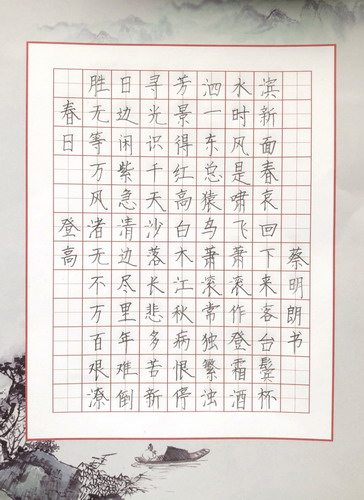 春日
胜日寻芳泗水滨
无边光景一时新
等闲识得东风面
万紫千红总是春
登高
风急天高猿啸哀
渚清沙白鸟飞回
无边落木萧萧下
不尽长江滚滚来
万里悲秋常作客
百年多病独登台
艰难苦恨繁霜鬓
潦倒新停浊酒杯
蔡明朗书